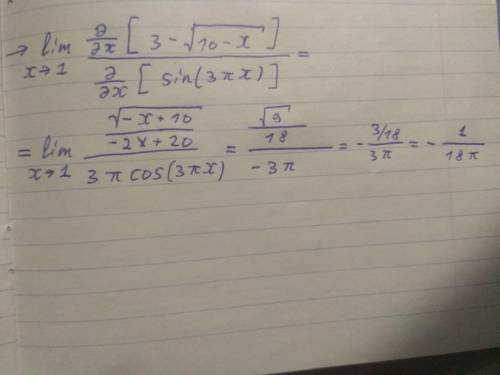 → lim x→1 (∂/∂x [ 3 - √(10 - x) ]) / (∂/∂x [ sin(3πx) ]) =
= lim x→1 (√(-x + 10) / (-2x + 20)) / (3π cos(3πx)) = (√9 / 18) / (-3π) = - (3/18) / (3π) = - 1 / (18π)